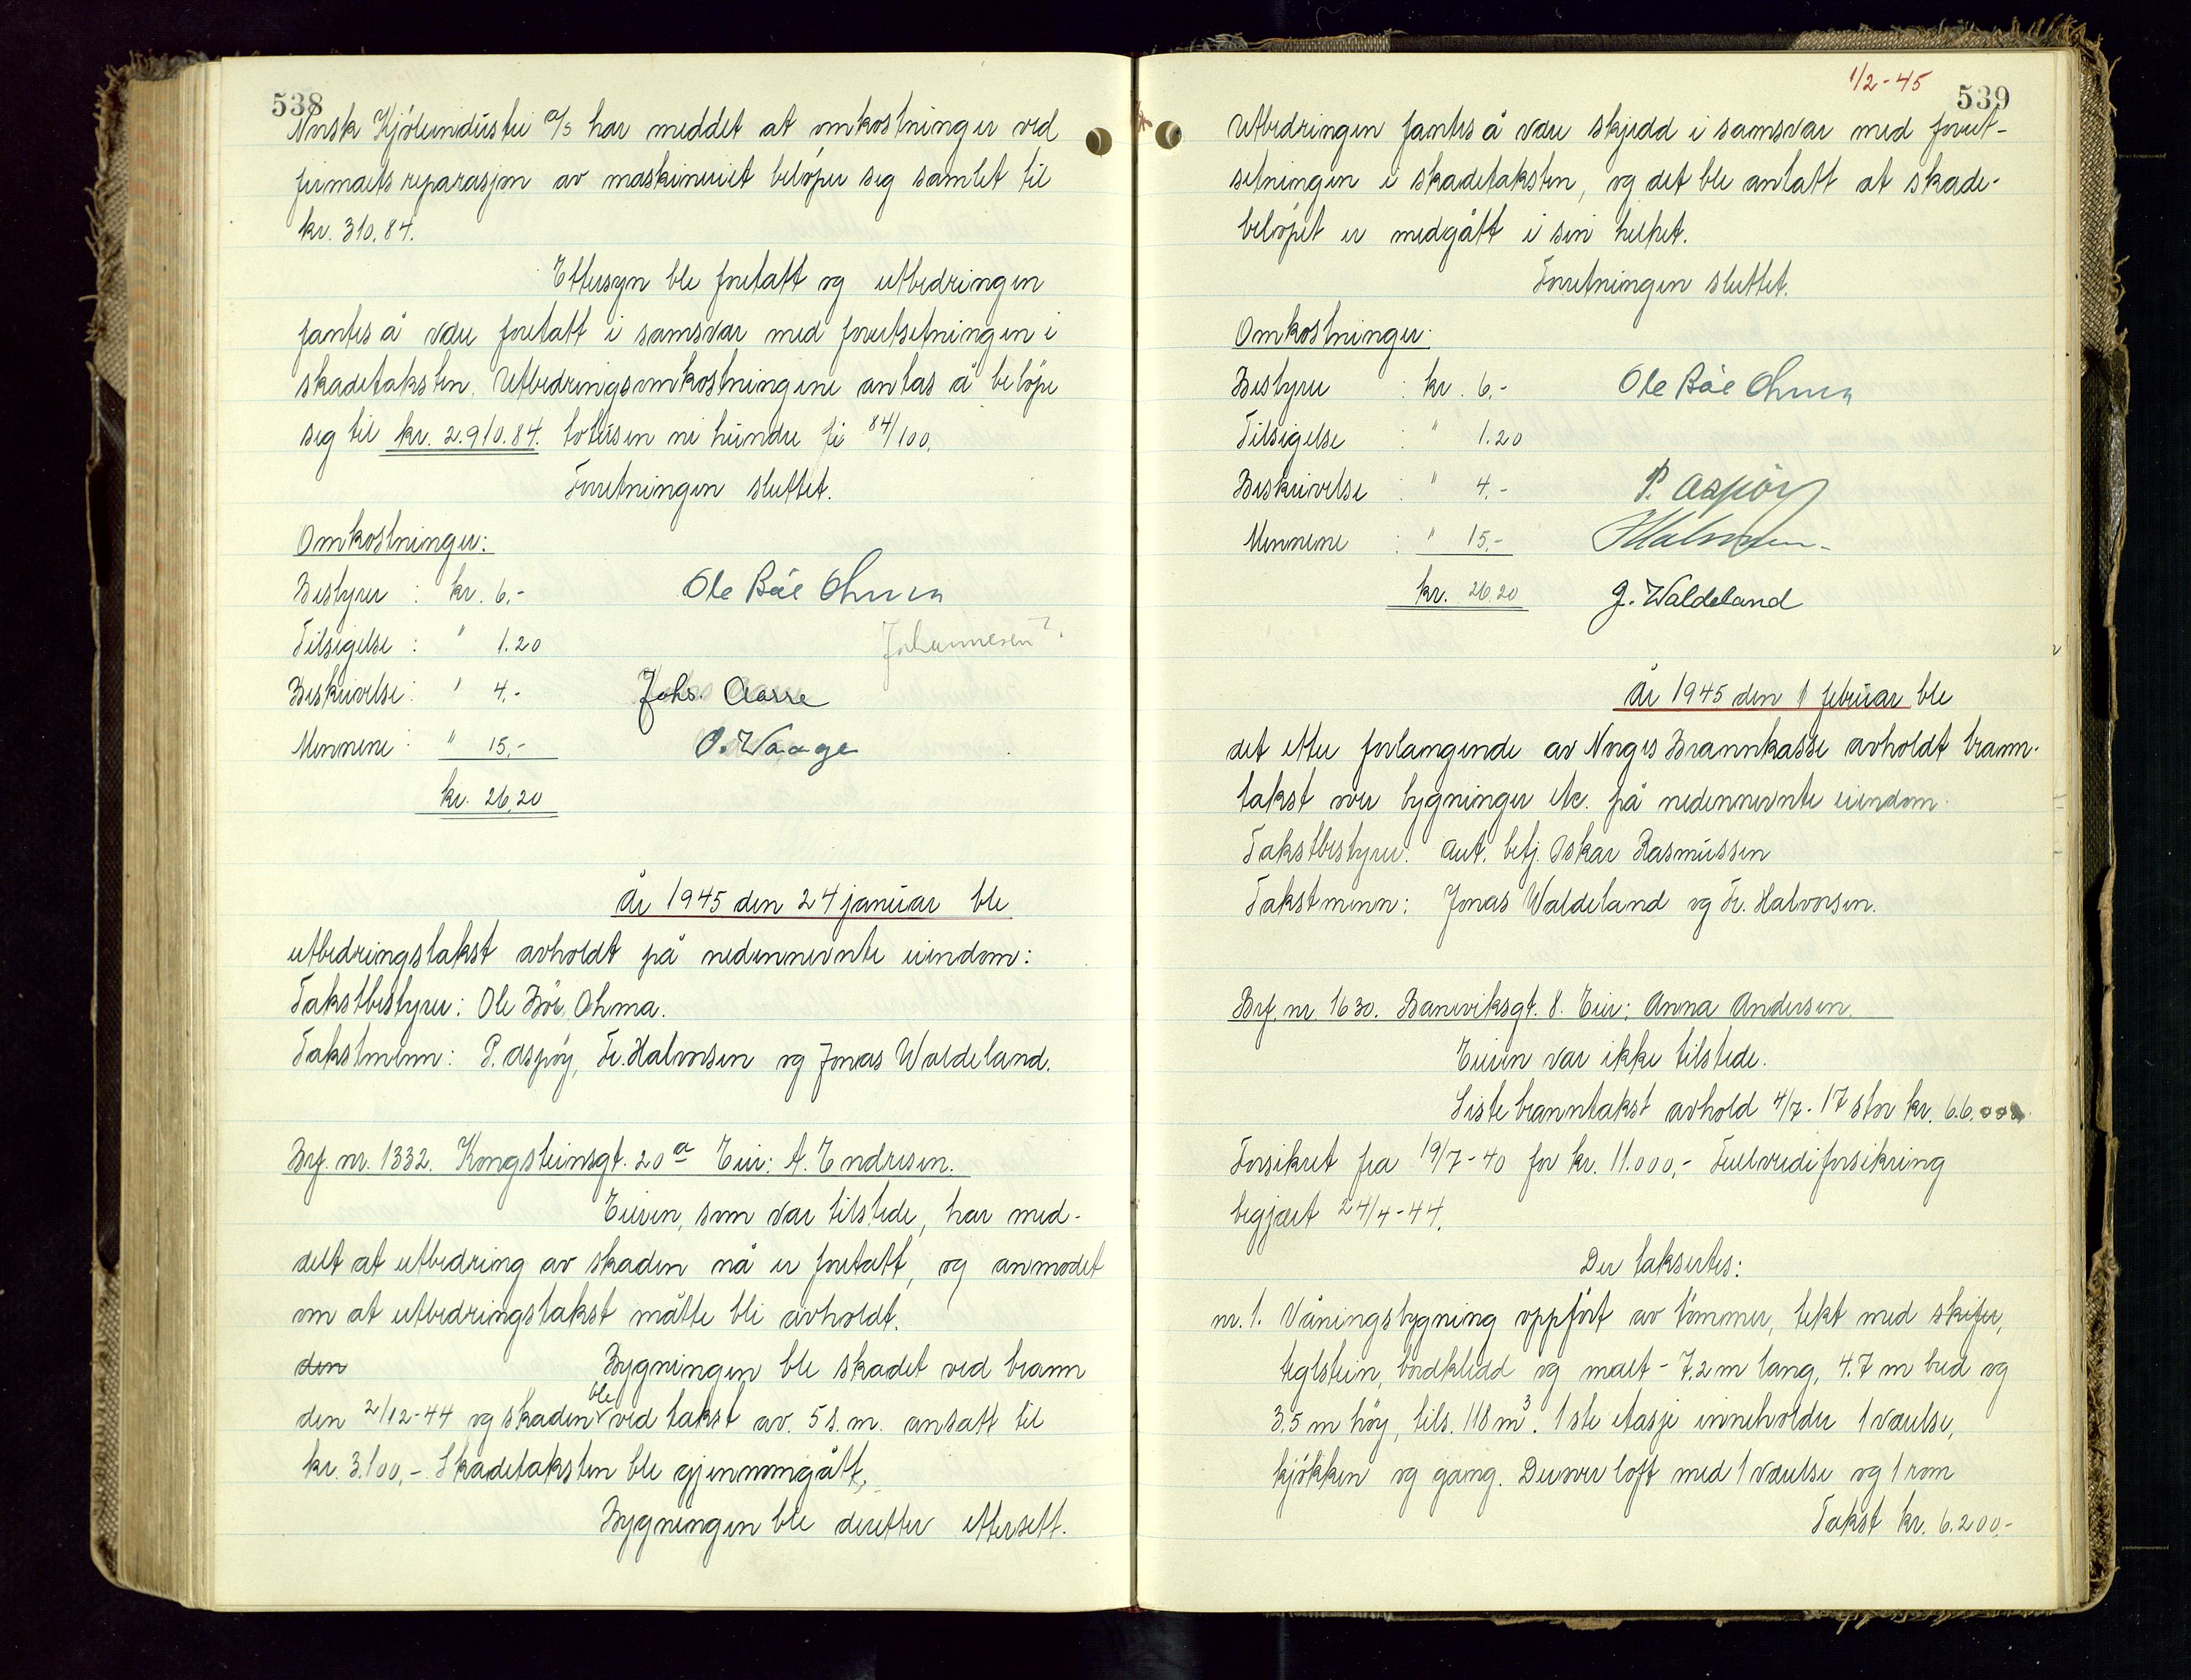 538
Norsk Kjøleindustri A/S har meddet at omkostninger ved
firmaets reparasjon av maskineriet beløper seg samlet til
kr. 310,84.
Ettersyn ble foretatt og utbedringen
fantes å være foretatt i samsvar med forutsetningen i
skadetaksten. Utbedringsomkostningene antas å beløpe
seg til kr. 2.910.84. totusen ni hundre ti 84/100.
Forretningen sluttet.
Omkostninger:
Bestyrer : kr. 6,-
Ole Bøe Ohma
Tilsigelse : " 1.20
Johannesen?
Beskrivelse : " 4.-
Johs. Aarre
Mennene : " 15,-
O. Waage
kr. 26,20
År 1945 den 24 januar ble
utbedringstakst avholdt på nedennevnte eiendom:
Takstbestyrer: Ole Bøe Ohma.
Takstmenn: P. Aspøy, Fr. Halvorsen og Jonas Waldeland.
Brf. nr. 1332. Kongsteinsgt. 20a Eier: A. Endresen.
Eieren, som var tilstede, har med-
delt at utbedring av skaden nå er foretatt, og anmodet
om at utbedringstakst måtte bli avholdt.
den Bygningen ble skadet ved brann
den 2/12-44 og skaden ble ved takst av. 5 s. m. ansatt til
kr. 3.100,- Skadetaksten ble gjennomgått.
Bygningen ble deretter ettersett.
1/2-45
539
Utbedringen fantes å være skjedd i samsvar med forut-
setningen i skadetaksten, og det ble antatt at skade-
beløpet er medgått i sin helhet.
Forretningen sluttet.
Omkostninger:
Bestyrer : kr. 6,-
Ole Bøe Ohma
Tilsigelse : " 1.20
Beskrivelse : " 4,-
P. Aspøy
Mennene : " 15,-
kr. 26.20
J. Waldeland
År 1945 den 1 februar ble
det etter forlangende av Norges Brannkasse avholdt brann-
takst over bygninger etc. på nedennevnte eiendom.
Takstbestyrer: Aut. betj. Oskar Rasmussen
Takstmenn: Jonas Waldeland og Fr. Halvorsen.
Brf. nr. 1630. Baneviksgt. 8. Eier: Anna Andersen.
Eieren var ikke tilstede.
Siste branntakst avhold 4/7-17 stor kr. 6.6.000
Forsikret fra 19/7-40 for kr. 11.000,- Fullverdiforsikring
begjært 24/4-44.
Der takserte​s:
nr. 1. Våningsbygning oppført av tømmer, tekt med skifer,
teglstein, bordkledd og malt - 7.2 m lang, 4.7 m bred og
3.5 m høy, tils. 118 m³. 1ste etasje inneholder 1 værelse,
kjøkken og gang. Derover loft med 1 værelse og 1 rom
Takst kr. 6.200.-